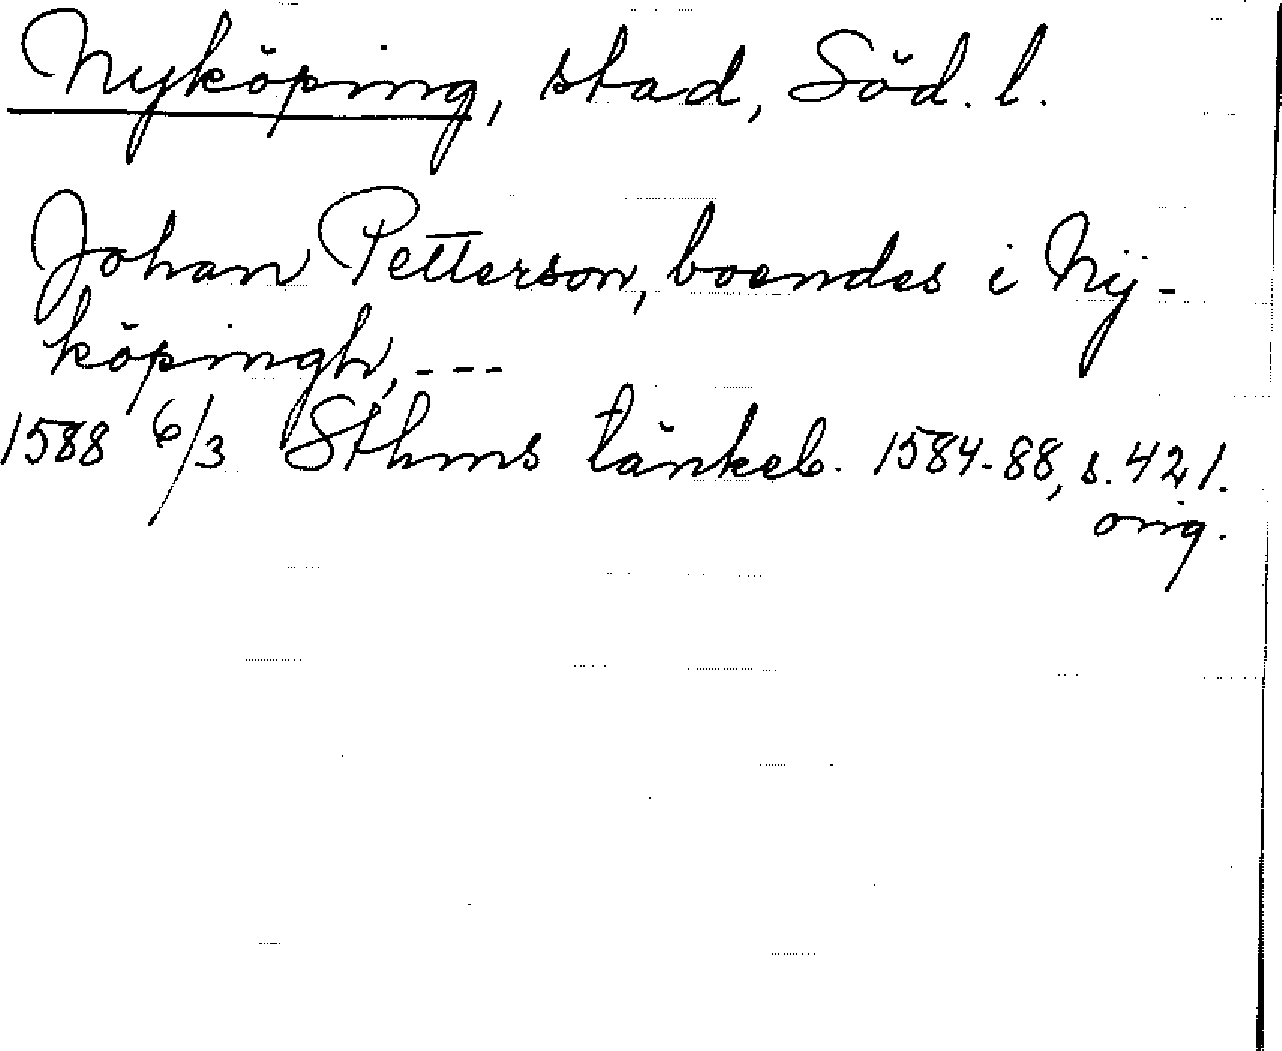 Nyköping, stad, Söd. l.
Johan Petterson, boendes i Nÿ-
köpingh, ---
1588 6/3 Sthms tänkeb. 1584-88, s. 421.
orig.